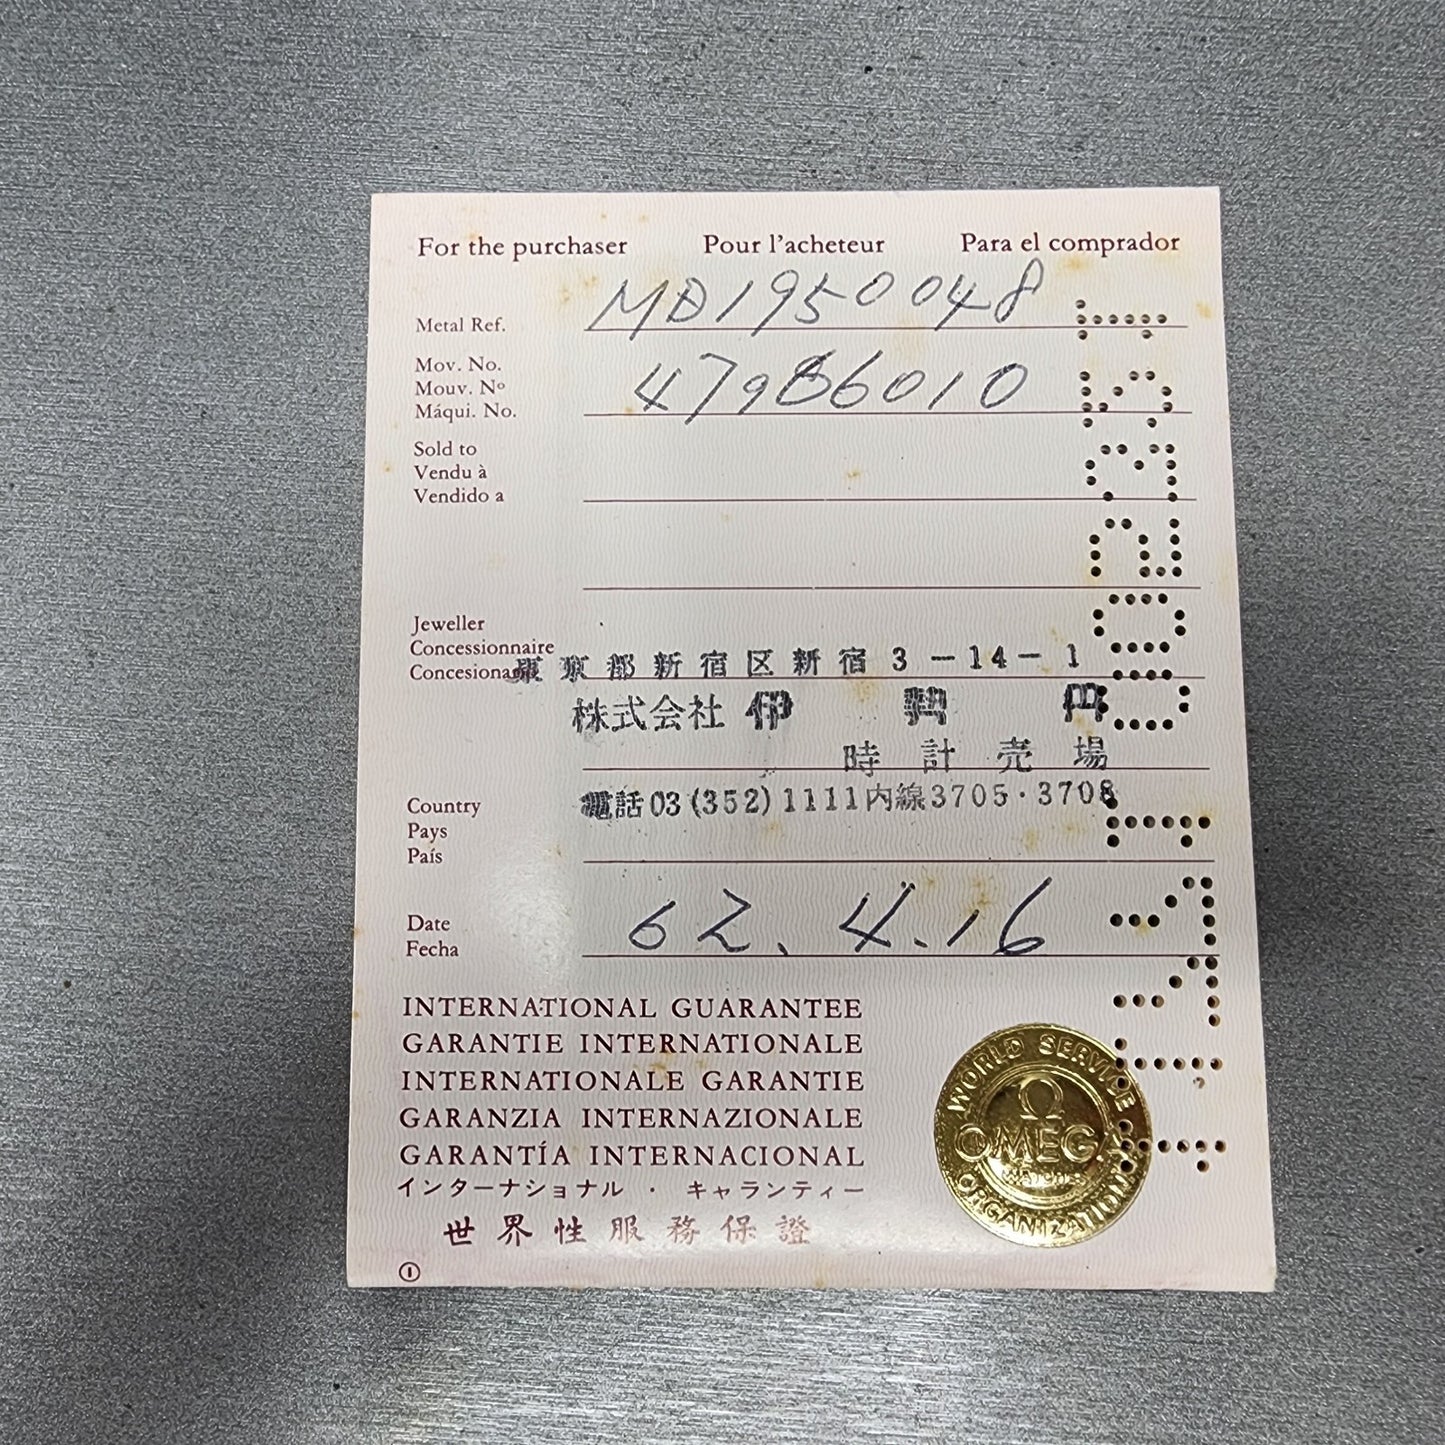 For the purchaser Pour l'acheteur Para el comprador
Metal Ref. MD1950048
Mov. No.
Mouv. Nº 479B6010
Máqui. No.
Sold to
Vendu à
Vendido a
Jeweller
Concessionnaire
東京都新宿区新宿3-14-1
株式会社 伊勢丹
時計売場
電話03(352)1111内線3705・3708
Country
Pays
País
Date 62.4.16
Fecha
INTERNATIONAL GUARANTEE
GARANTIE INTERNATIONALE
INTERNATIONALE GARANTIE
GARANZIA INTERNAZIONALE
GARANTÍA INTERNACIONAL
インターナショナル・キャランティー
世界性服務保證
WORLD SERVICE ORGANIZATION
Ω
OMEGA
1